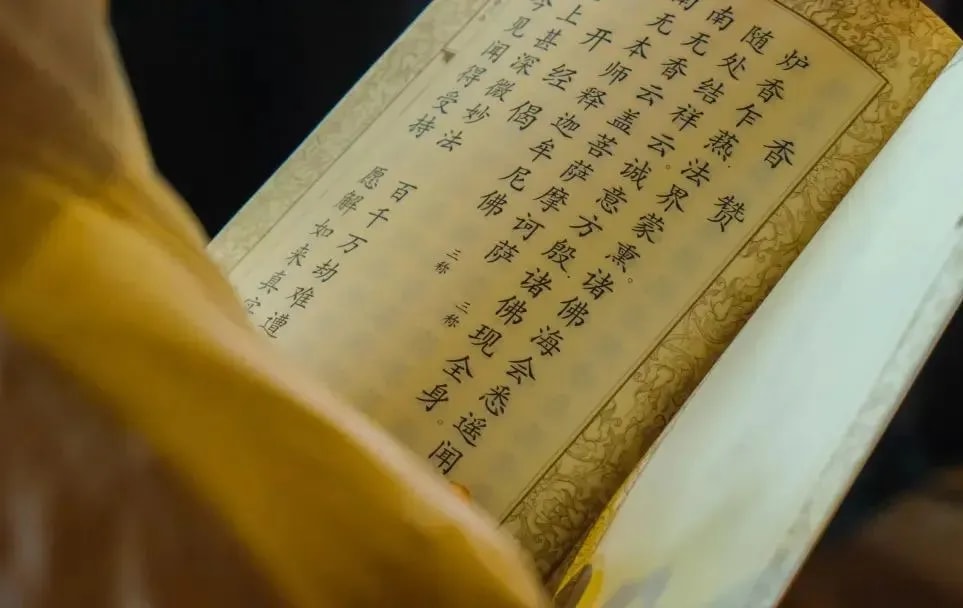 香赞
炉香乍爇法界蒙熏。诸佛海会悉遥闻
随处结祥云。诚意方殷诸佛现全身。
南无香云盖菩萨摩诃萨 三称
无本师释迦牟尼佛 三称
开经偈
上甚深微妙法 百千万劫难遭
今见闻得受持 愿解如来真